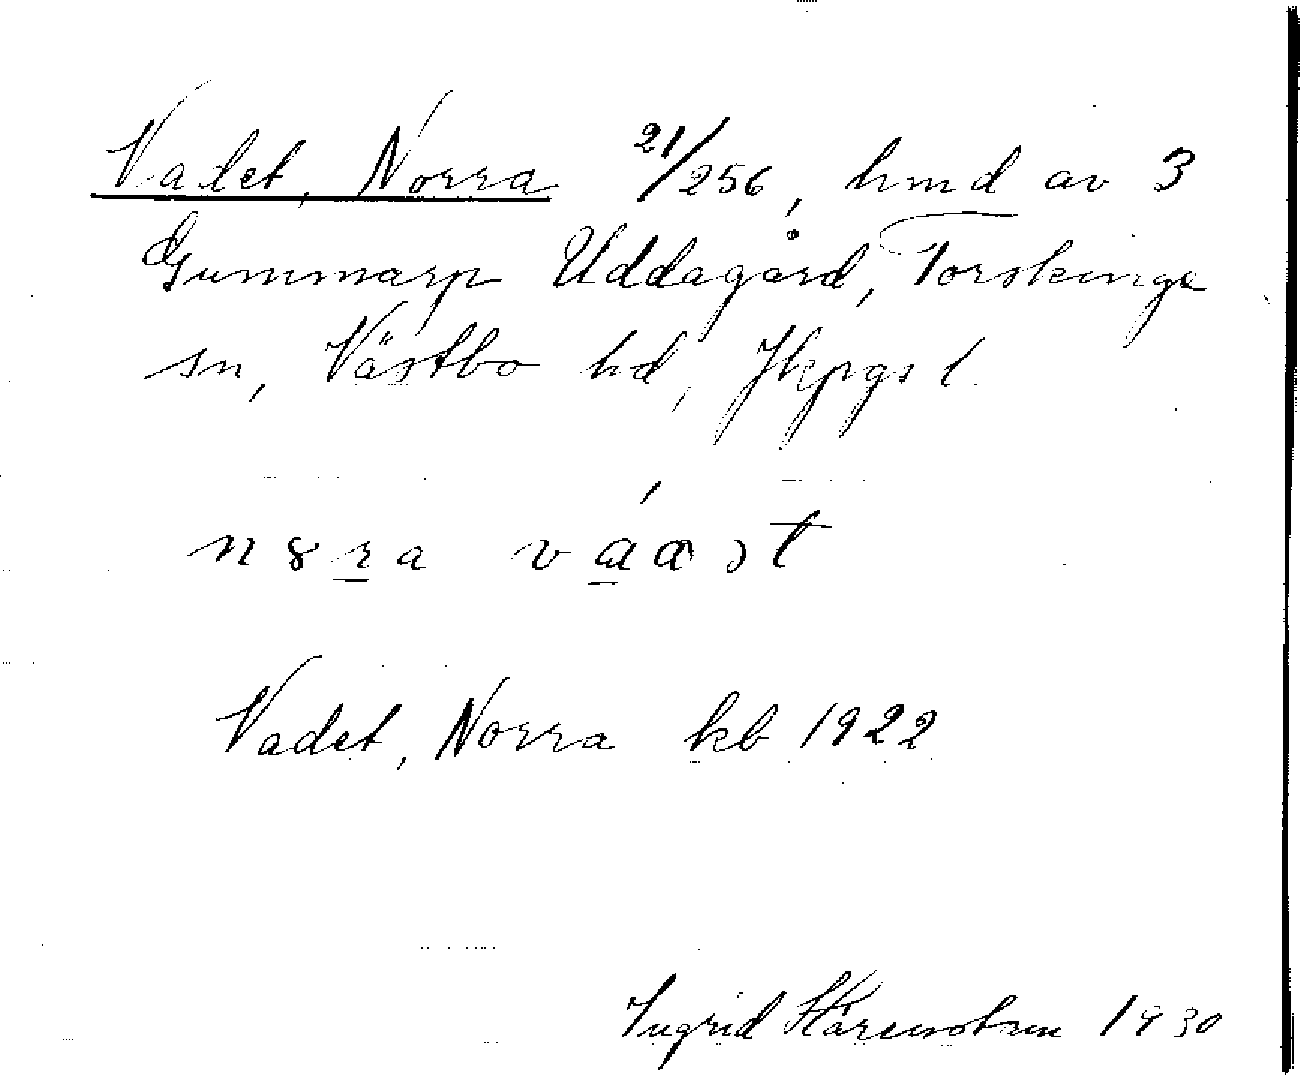 Vadet, Norra 21/256, hmd av 3
Gummarp Uddagård, Torskinge
sn, Västbo hd, Jkpgs l.
Vadet, Norra kb 1922
Ingrid 1930